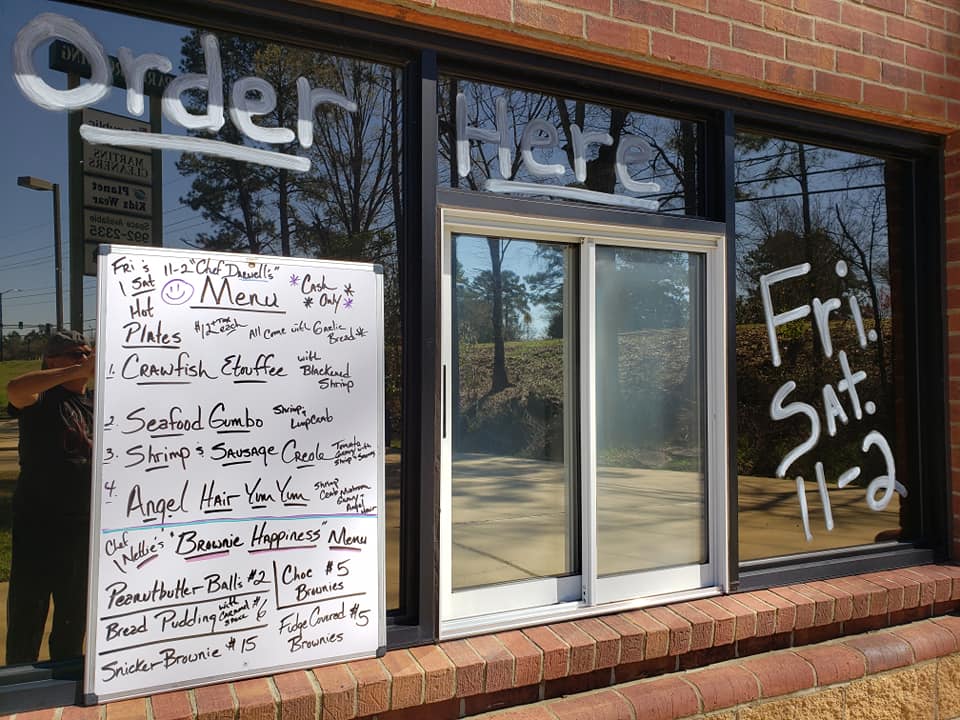 Order Here
MARTINS
CLEANERS
Planet
Kids Wear
Space Available
992-2335
Fri. 
Sat.
11-2
Fri & 11-2 "Chef Darvell's"
Sat
Hot Menu *Cash
* Only *
Plates $12 + tax each All come with Garlic Bread
1. Crawfish Etouffee with
Blackened
Shrimp
2. Seafood Gumbo Shrimp &
Lump Crab
3. Shrimp & Sausage Creole Tomato
Gravy with
Shrimp & Sausage
4. Angel Hair Yum Yum Shrimp
Crab Mushroom
Gravy
Chef
Nettie's "Brownie Happiness" Menu
Peanutbutter Balls $2
Choc $5
Brownies
Bread Pudding with
Caramel
Sauce $6
Fudge Covered $5
Brownies
Snicker Brownie $15